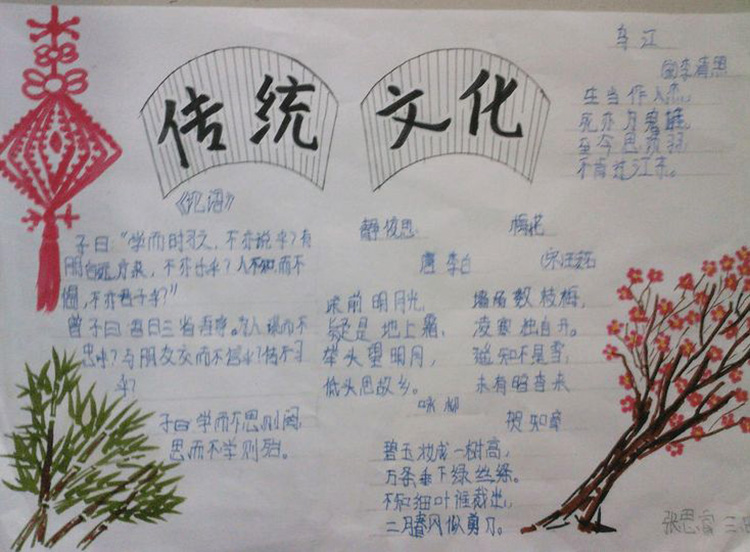 传统 文化
乌江
李清照
生当作人杰,
死亦为鬼雄,
至今思项羽
不肯过江东。
子曰:"学而时习之,不亦说乎?有
朋自远方来,不亦乐乎?人不知而不
愠,不亦君子乎?"
曾子曰:吾日三省吾身。为人谋而不
忠乎?与朋友交而不信乎?传不习
乎?
子曰学而不思则罔,
思而不学则殆。
静夜思
唐 李白
床前明月光,
疑是地上霜,
举头望明月,
低头思故乡。
梅花
宋 王安石
墙角数枝梅,
凌寒独自开。
遥知不是雪,
未有暗香来
咏柳
贺知章
碧玉妆成一树高,
万条垂下绿丝绦。
不知细叶谁裁出,
二月春风似剪刀。
张思 三